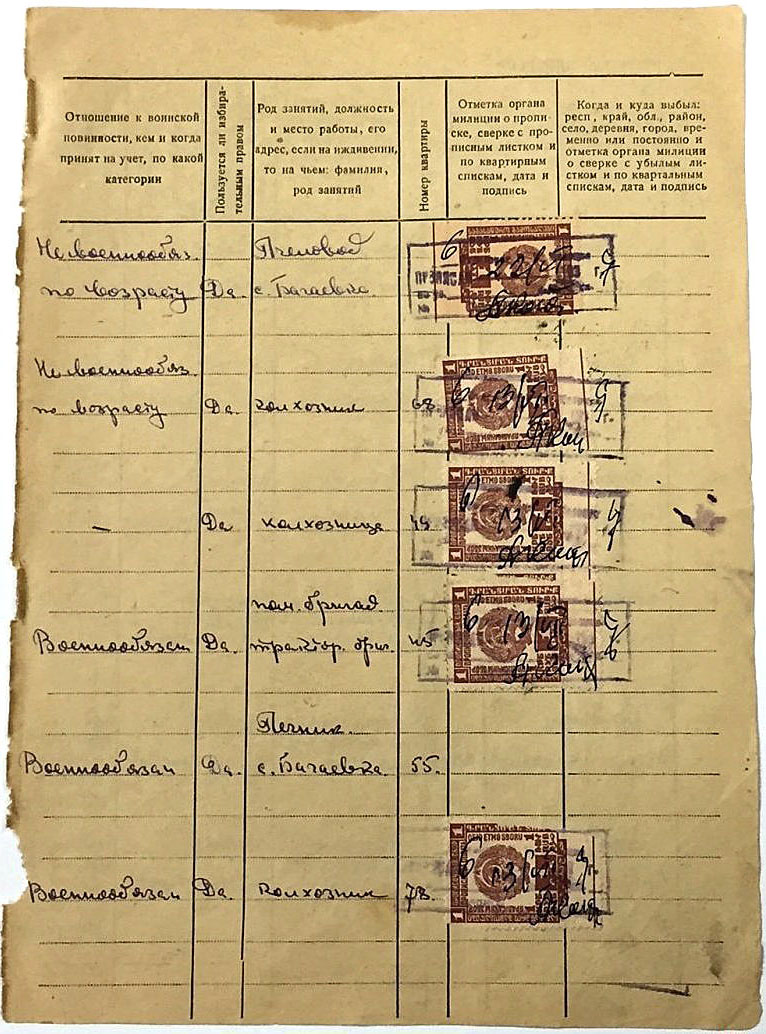 Отношение к воинской
повинности, кем и когда
принят на учет, по какой
категории
Пользуется ли избира-
тельным правом
Род занятий, должность
и место работы, его
адрес, если на иждивении,
то на чьем: фамилия,
род занятий
Номер квартиры
Отметка органа
милиции о пропи-
ске, сверке с про-
писным листком и
по квартирным
спискам, дата и
подпись
Когда и куда выбыл:
респ., край, обл., район,
село, деревня, город, вре-
менно или постоянно и
отметка органа милиции
о сверке с убылым ли-
стком и по квартальным
спискам, дата и подпись
Не военнообяз. Пчеловод
по возрасту Да с. Багаевка
6 22/VI
Не военнообяз.
по возрасту Да. колхозник 68
ԳՐԱՆՑՄԱՆ ՏՈՒՐՔ
6 13/VI
— Да колхозница 49
ԳՐԱՆՑՄԱՆ ՏՈՒՐՔ
6 13/VI
пом. бригад
Военнообязан Да. трактор. бриг. 45
ԳՐԱՆՑՄԱՆ ՏՈՒՐՔ
6 13/VI
Печник.
Военнообязан Да. с. Багаевка. 55.
Военнообязан Да. колхозник 73.
6 13/VI